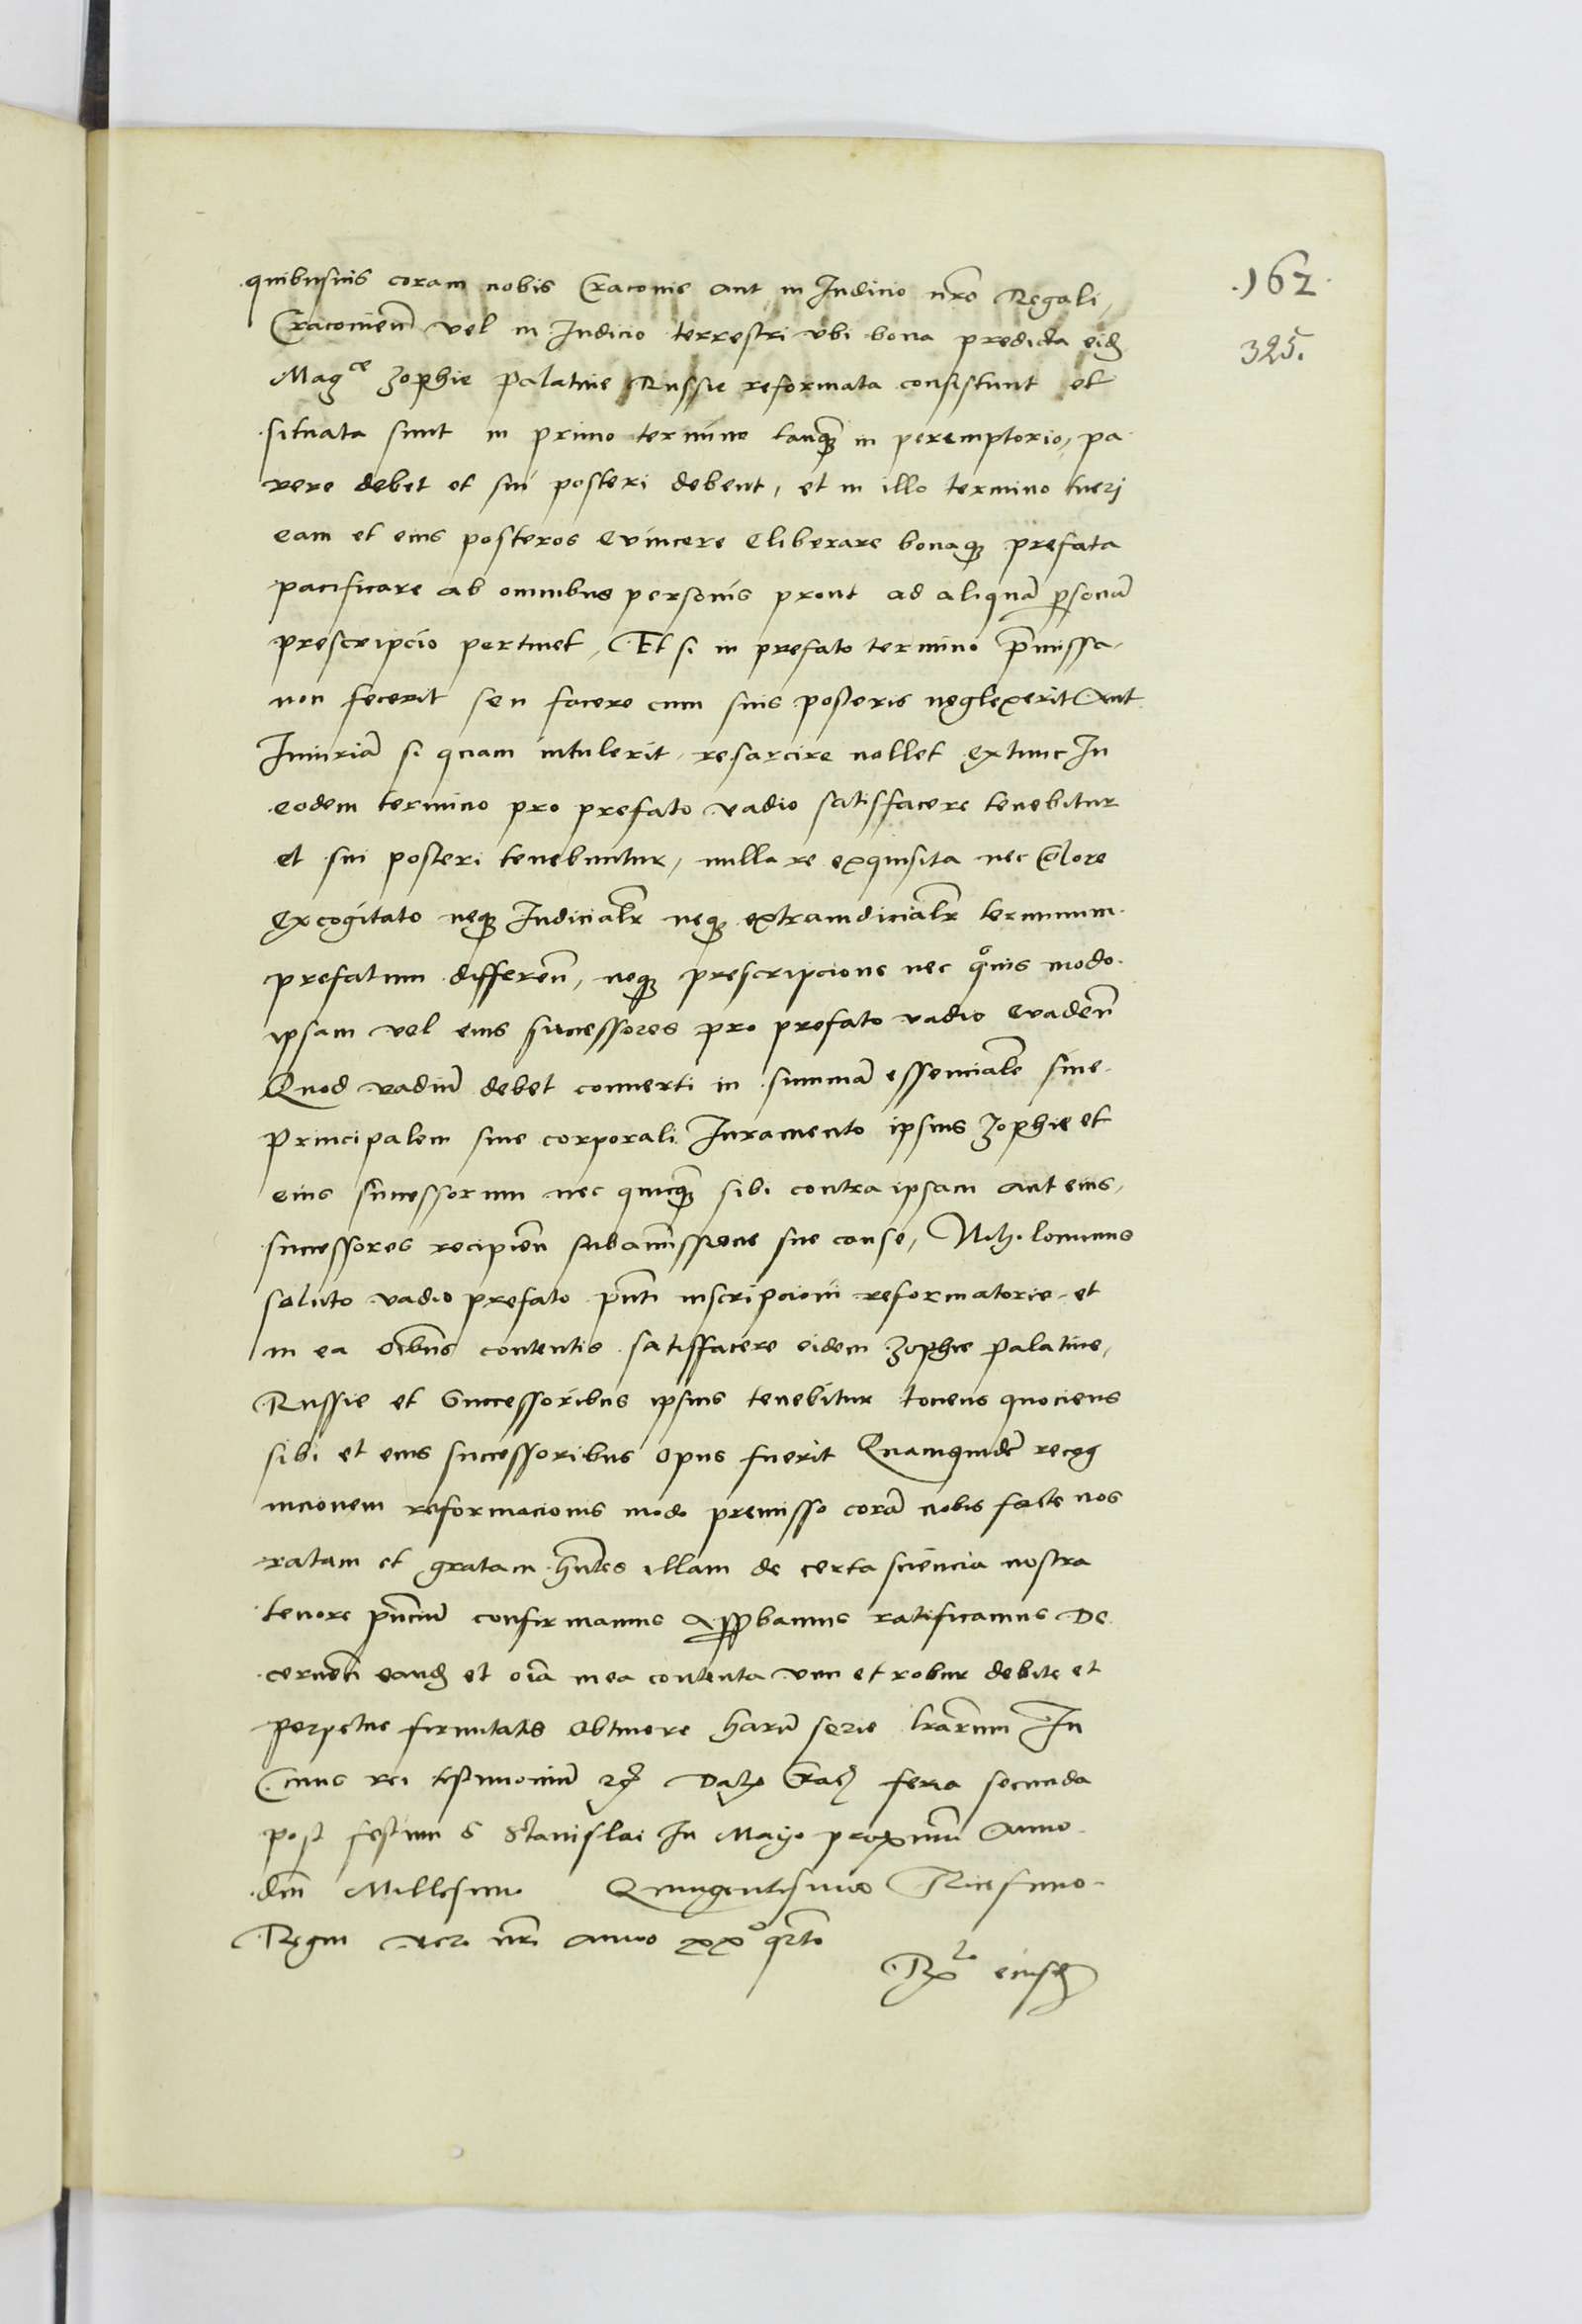 .162.
325.
quibusuis coram nobis Cracouie aut in Iudicio nro Regali,
Cracouien̄ vel in Iudicio terrestri vbi bona predicta eid
Magce Zophie Palatine Russie reformata consistunt et
situata sunt in primo termino tanq̄ in peremptorio, pa
rere debet et sui posteri debent, et in illo termino tueri
eam et eius posteros Euincere Eliberare bonaq prefata
pacificare ab omnibus personis prout ad aliquā psonā
prescripcio pertinet, Et si in prefato termino p̄missa
non fecerit seu facere cum suis posteris neglexerit Aut
Iniuriā si quam intulerit resarcire nollet extunc In
eodem termino pro prefato vadio satisfacere tenebitur
et sui posteri tenebuntur, nulla re exquisita nec Colore
Excogitato neq Iudicialr neq extraiudicialr terminum
prefatum differen̄, neq prescripcione nec quis modo
ipsam vel eius successores pro prefato vadio euaden̄
Quod vadiū debet conuerti in summā essencialē siue
Principalem sine corporali Iuramento ipsius Zophie et
eius successorum nec quicq̄ sibi contra ipsam aut eius,
successores recipien̄ sub amissione sue cause, Nihilominus
soluto vadio prefato pn̄ti inscripcioni reformatorie et
in ea oībus contentis satisfacere eidem Zophie Palatine,
Russie et Successoribus ipsius tenebitur tociens quociens
sibi et eius successoribus opus fuerit Quamquidē recog
nicionem reformacionis modo premisso corā nobis facte nos
ratam et gratam hn̄tes illam de certa sciencia nostra
tenore pn̄ciū confirmamus Approbamus ratificamus De
cernen̄ eand et oīa in ea contenta vim et robur debite et
perpetue firmitatis obtinere harū serie lrārum In
Cuius rei testimoniū Dat Crac feria secunda
post festum S Stanislai In Mayo proximū Anno
dn̄i Millesimo Quingentesimo Tricesimo
Regni vero nri anno xxo qrto
Rx eiusd